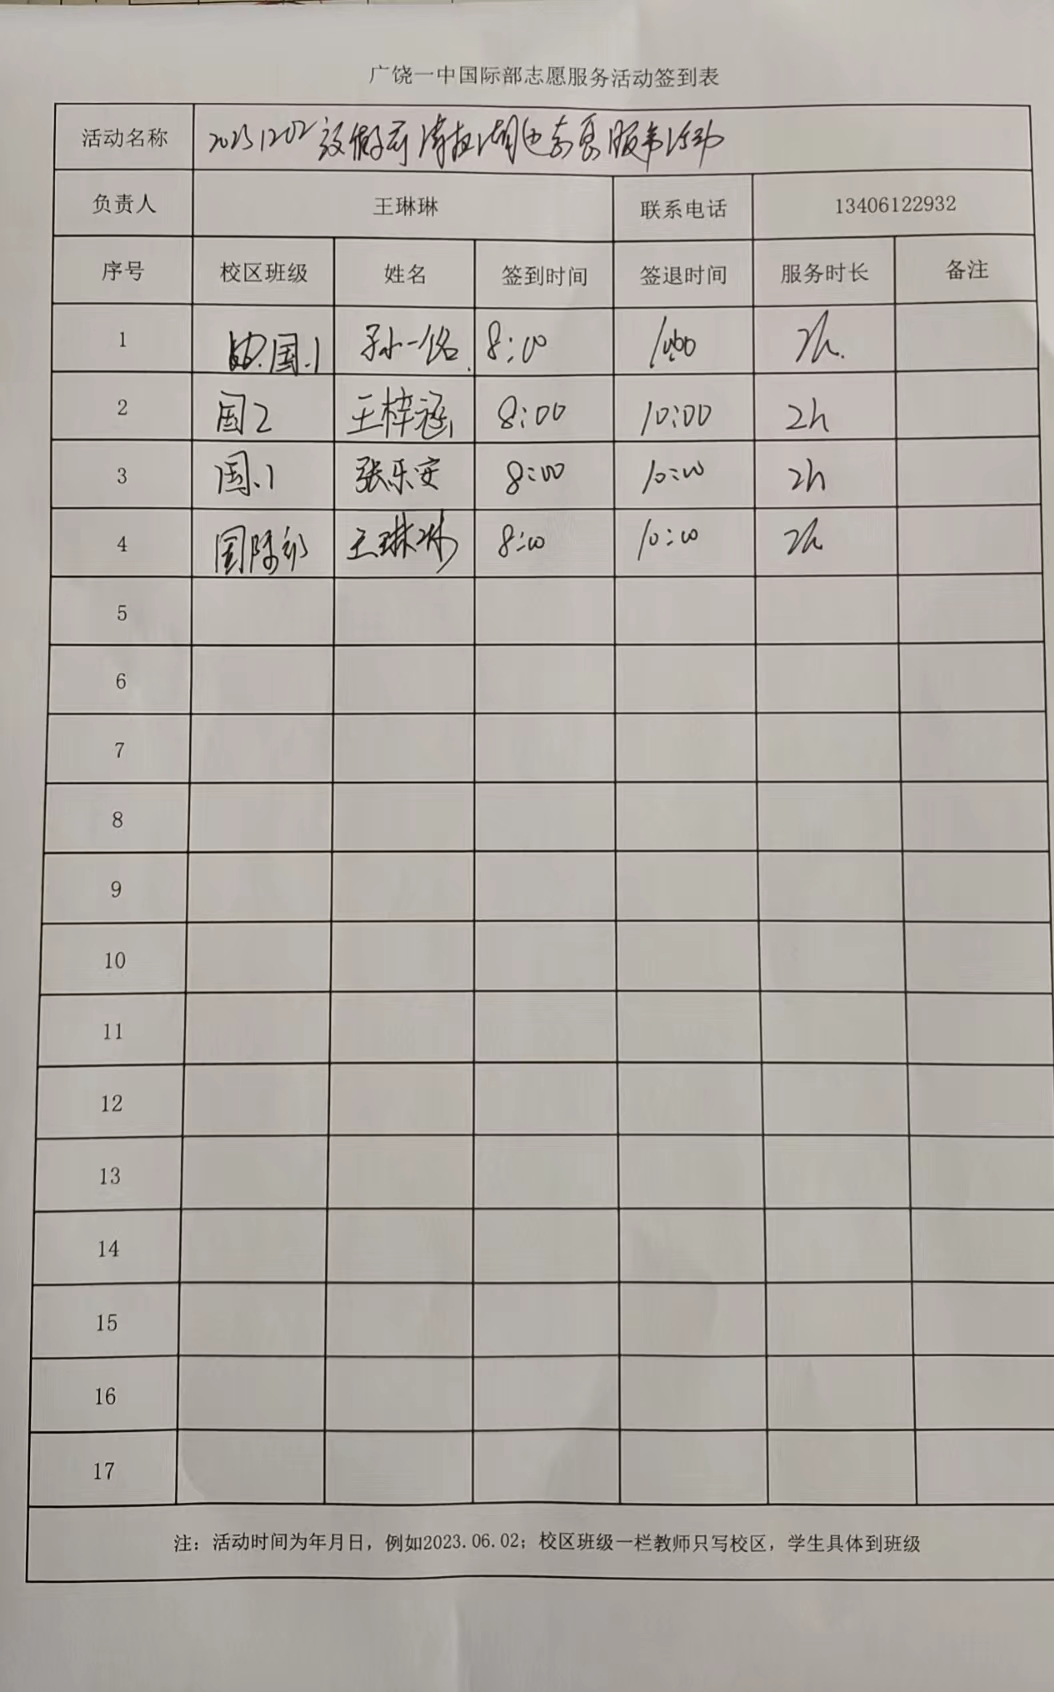 广饶一中国际部志愿服务活动签到表
活动名称 服务活动
负责人 王琳琳 联系电话 13406122932
序号 校区班级 姓名 签到时间 签退时间 服务时长 备注
1 国.1 孙一铭 8:00 10:00 2h.
2 国2 王梓涵 8:00 10:00 2h
3 国.1 张乐安 8:00 10:00 2h
4 国际部 王琳琳 8:00 10:00 2h
5
6
7
8
9
10
11
12
13
14
15
16
17
注：活动时间为年月日，例如2023.06.02；校区班级一栏教师只写校区，学生具体到班级